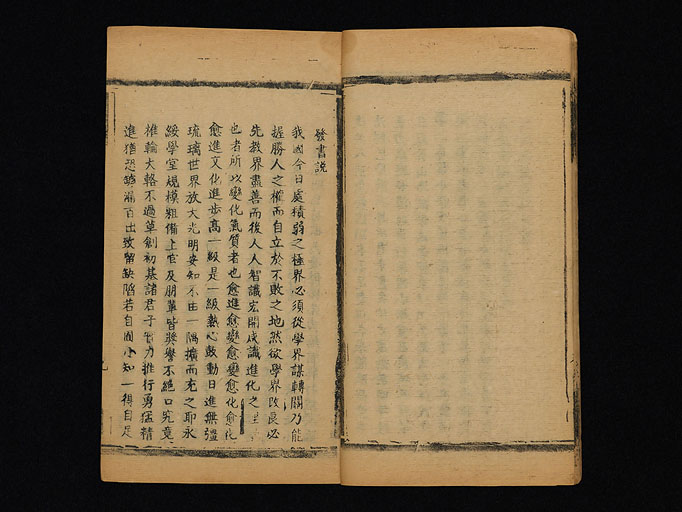 發書説
我國今日處積弱之極界必須從學界謀轉關乃能
握勝人之權而自立於不敗之地然欲學界改良必
先教界盡善而後人人智識宏開成識進化之
也者所以變化氣質者也愈進愈變愈變愈化愈化
愈進文化進步高一級是一級熱心鼓動日進無疆
琉璃世界放大光明安知不由一隅擴而充之耶永
綏學堂規模粗備上官及朋輩皆獎譽不絕口究竟
椎輪大輅不過草創初基諸君子力推行勇猛精
進猶恐漏百出致留缺陷若自囿小知一得自足